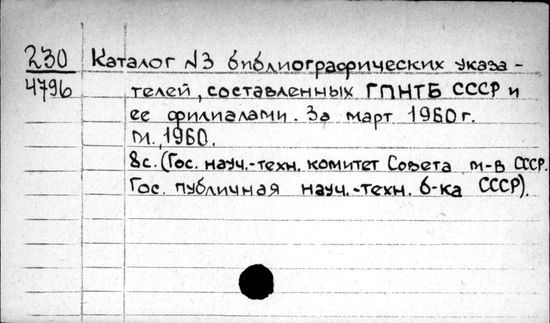 230 Каталог №3 библиографических указа-
4796 телей, составленных ГПНТБ СССР и
ее филиалами. За март 1960г.
М., 1960.
8с. (Гос. науч.-техн. комитет Совета м-в СССР.
Гос. публичная науч.-техн. б-ка СССР).